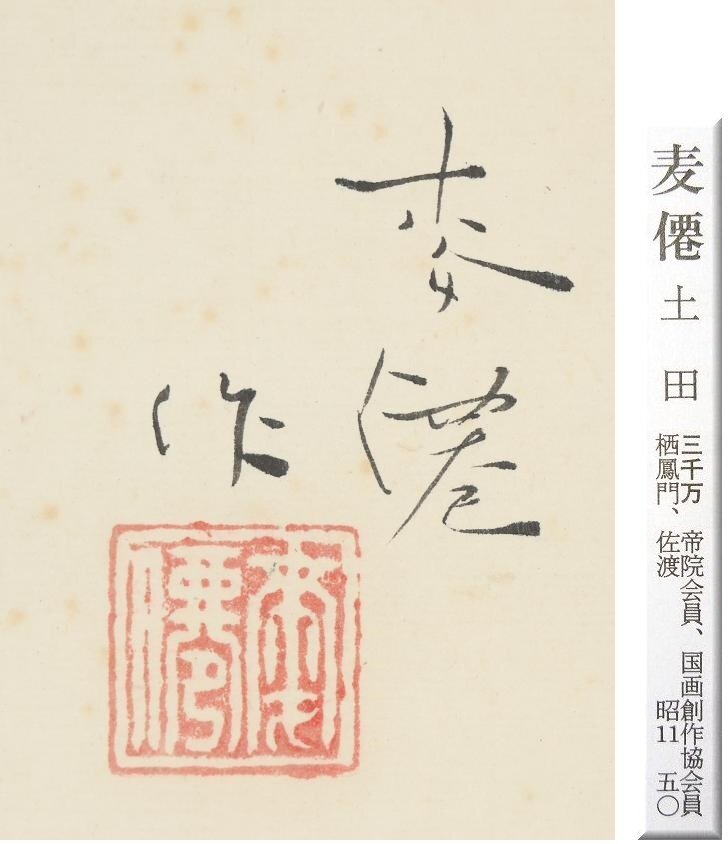 麦僊
作
麦僊
麦僊 土田 三千万 帝院会員、国画創作協会員
栖鳳門、佐渡 昭11 五〇